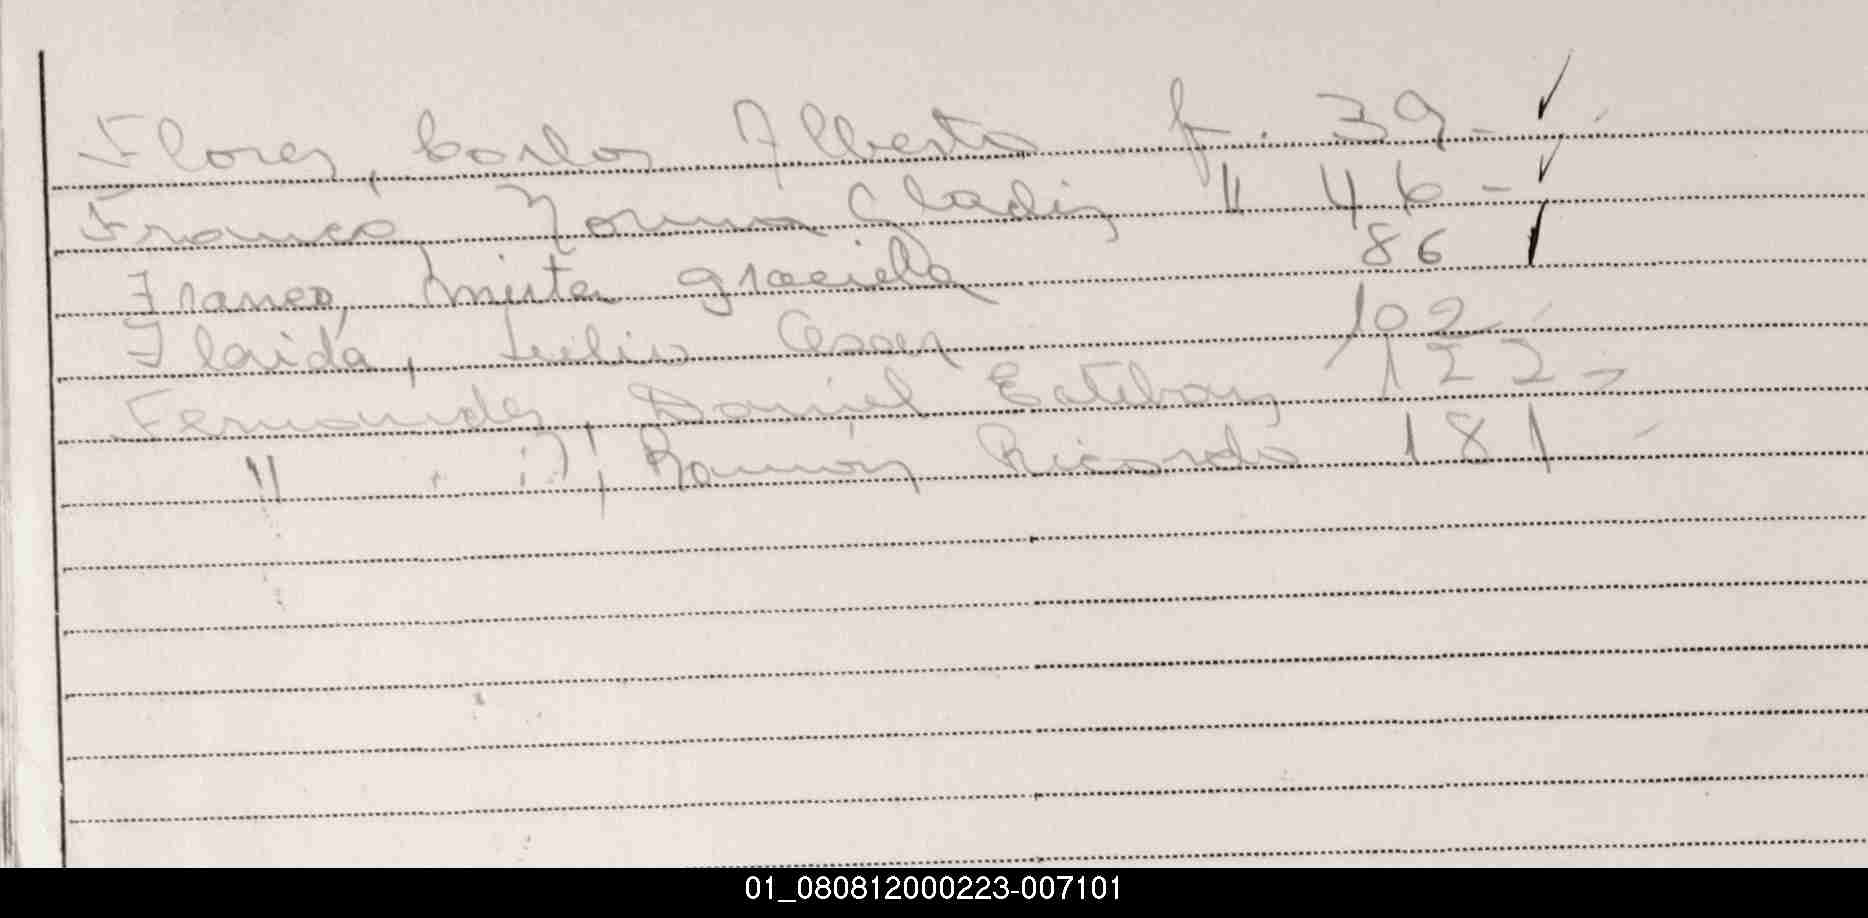 Flores, Carlos Alberto f. 39-
Franco, Norma Cladiz " 46-
Franco, Mirta Graciela 86
Flaida, Julio Cesar 102
Fernandez, Daniel Esteban 122-
" " , Ramón Ricardo 181
01_080812000223-007101